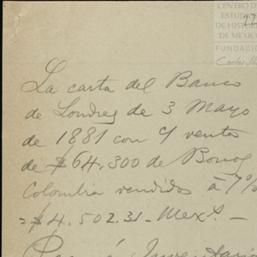 CENTRO DE
ESTUDIOS
DE HISTORIA
DE MEXICO
FUNDACIÓN
Carlos
La carta del Banco
de Londres de 3 Mayo
de 1881 con venta
de $64,300 de Bonos
Colombia vendidos à 7%
= $4.502.31 - Mex. -
Inventario